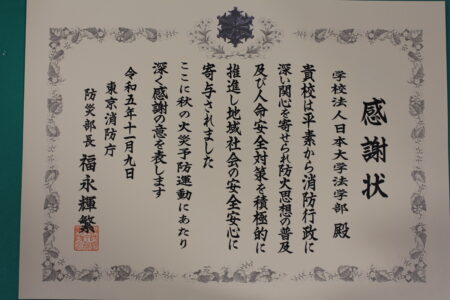 感謝状
学校法人日本大学法学部 殿
貴校は平素から消防行政に
深い関心を寄せられ防火思想の普及
及び人命安全対策を積極的に
推進し地域社会の安全安心に
寄与されました
ここに秋の火災予防運動にあたり
深く感謝の意を表します
令和五年十一月九日
東京消防庁
防災部長 福永輝繁